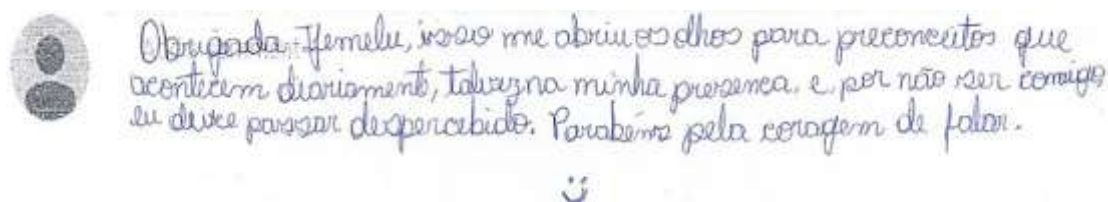 Obrigada Ifemelu, isso me abriu os olhos para preconceitos que
acontecem diariament, talvez na minha presença, e por não ser comigo
eu deixe passar despercebido. Parabéns pela coragem de falar.